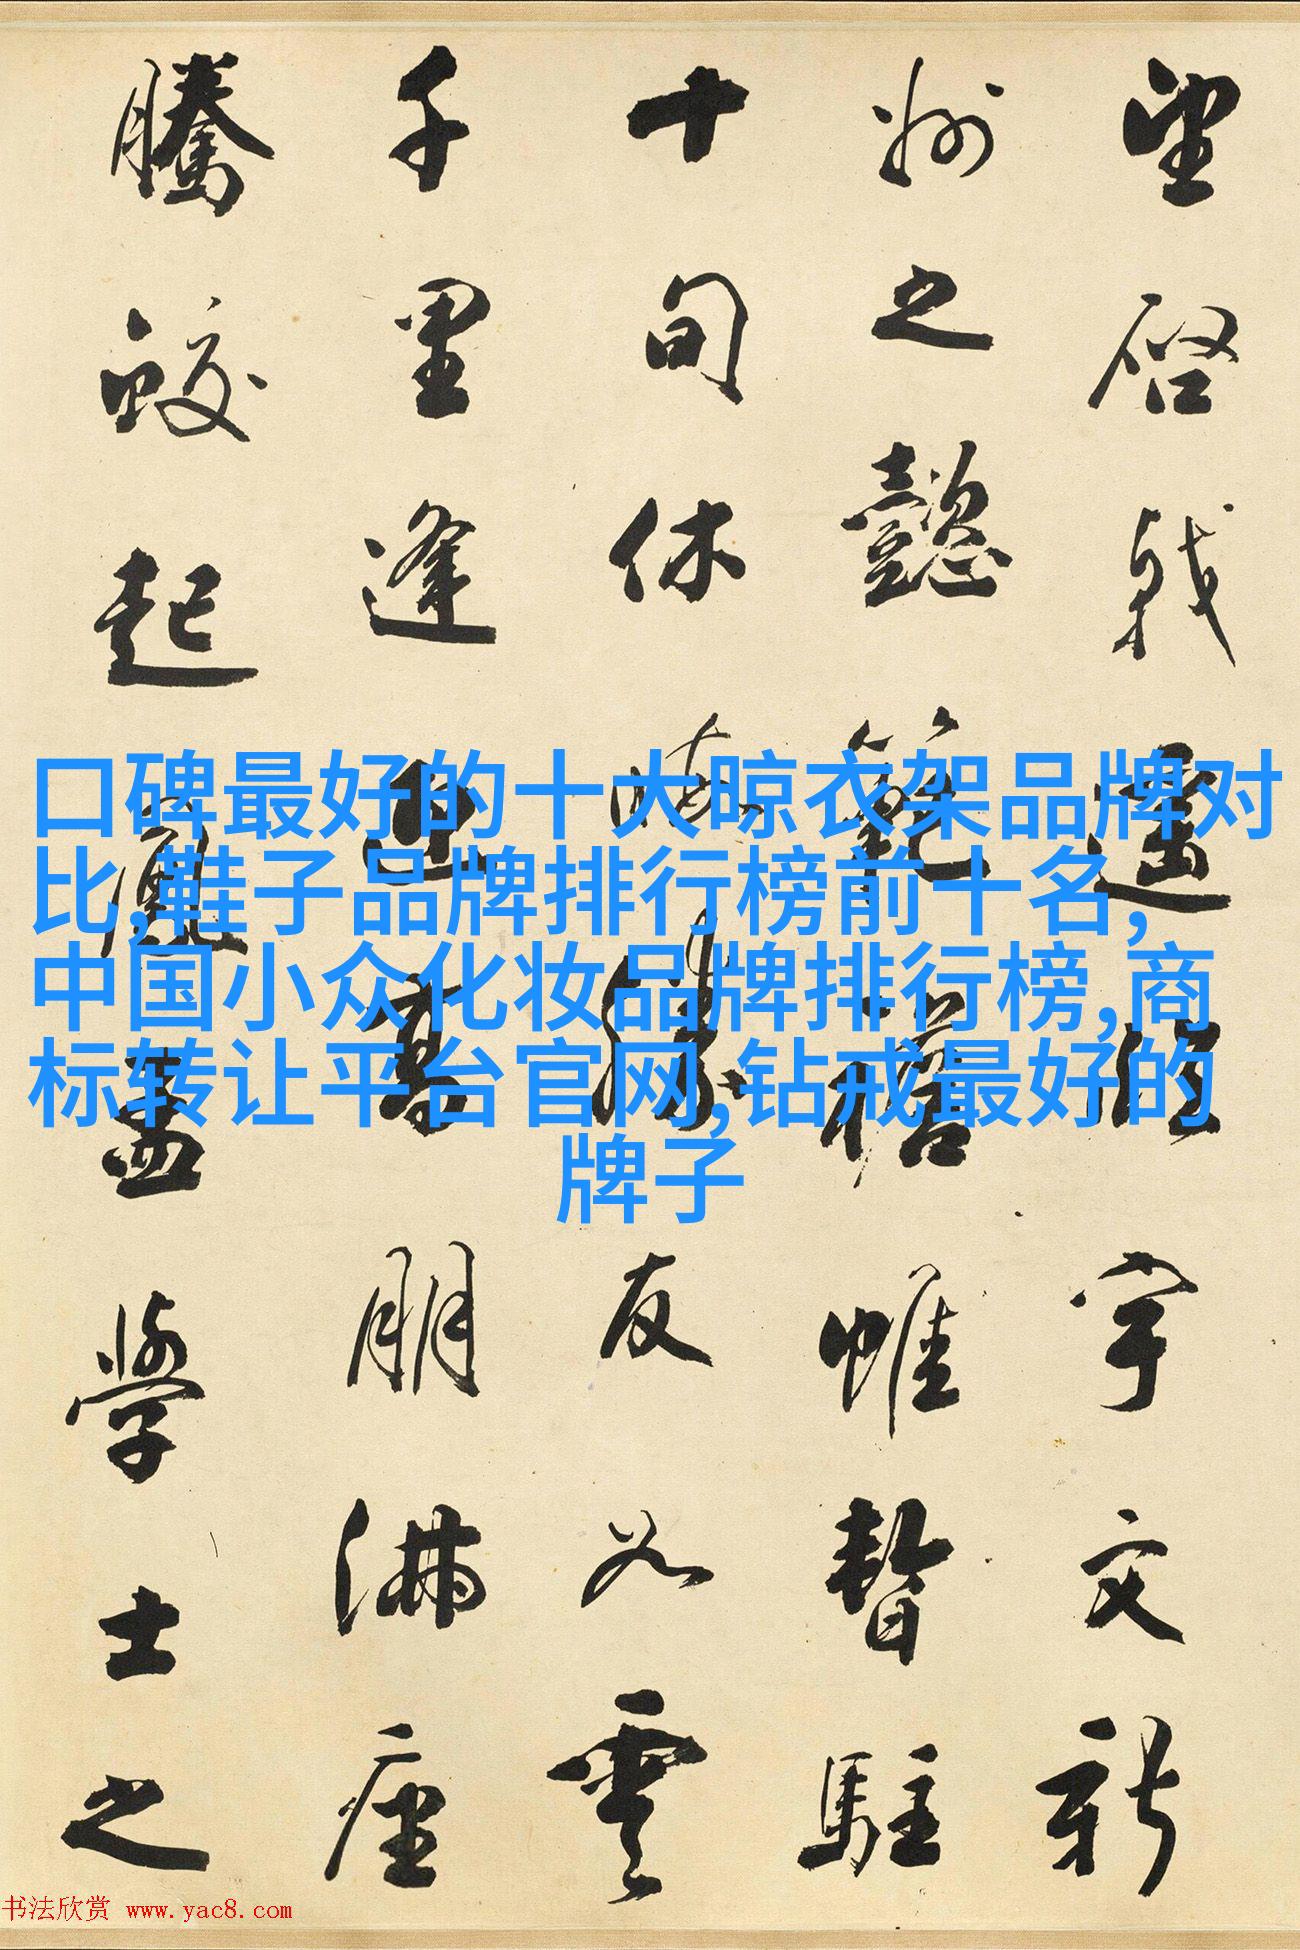 望启戟遥临宇文新
州之懿範襜帷暫駐
十旬休暇勝友如雲
千里逢迎高朋満座
騰蛟起鳳孟學士之
口碑最好的十大晾衣架品牌对
比,鞋子品牌排行榜前十名,
中国小众化妆品牌排行榜,商
标转让平台官网,钻戒最好的
牌子
书法欣赏 www.yac8.com